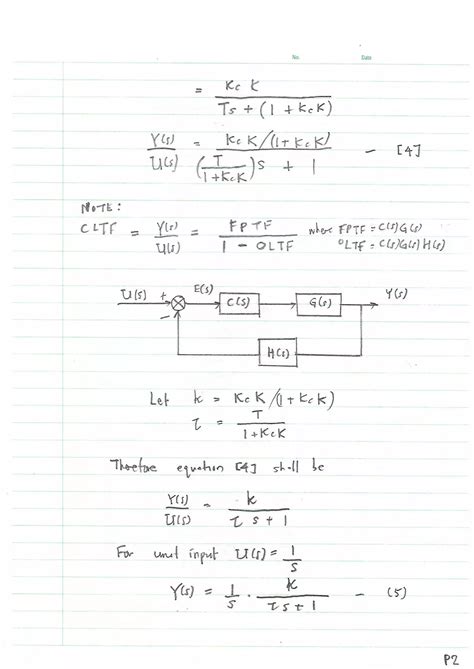 No.
Date
= Kc K / Ts + (1 + Kc K)
Y(s) / U(s) = Kc K/(1+ Kc K) / (T / 1+KcK)s + 1 — [4]
NOTE:
CLTF = Y(s) / U(s) = FPTF / 1 - OLTF where FPTF = C(s)G(s)
OLTF = C(s)G(s)H(s)
U(s) + E(s) C(s) G(s) Y(s)
−
H(s)
Let k = Kc K/(1 + Kc K)
τ = T / 1+KcK
Therefore equation [4] shall be
Y(s) / U(s) = k / τ s + 1
For unit input U(s) = 1 / s
Y(s) = 1 / s . k / τs + 1 — (5)
P2